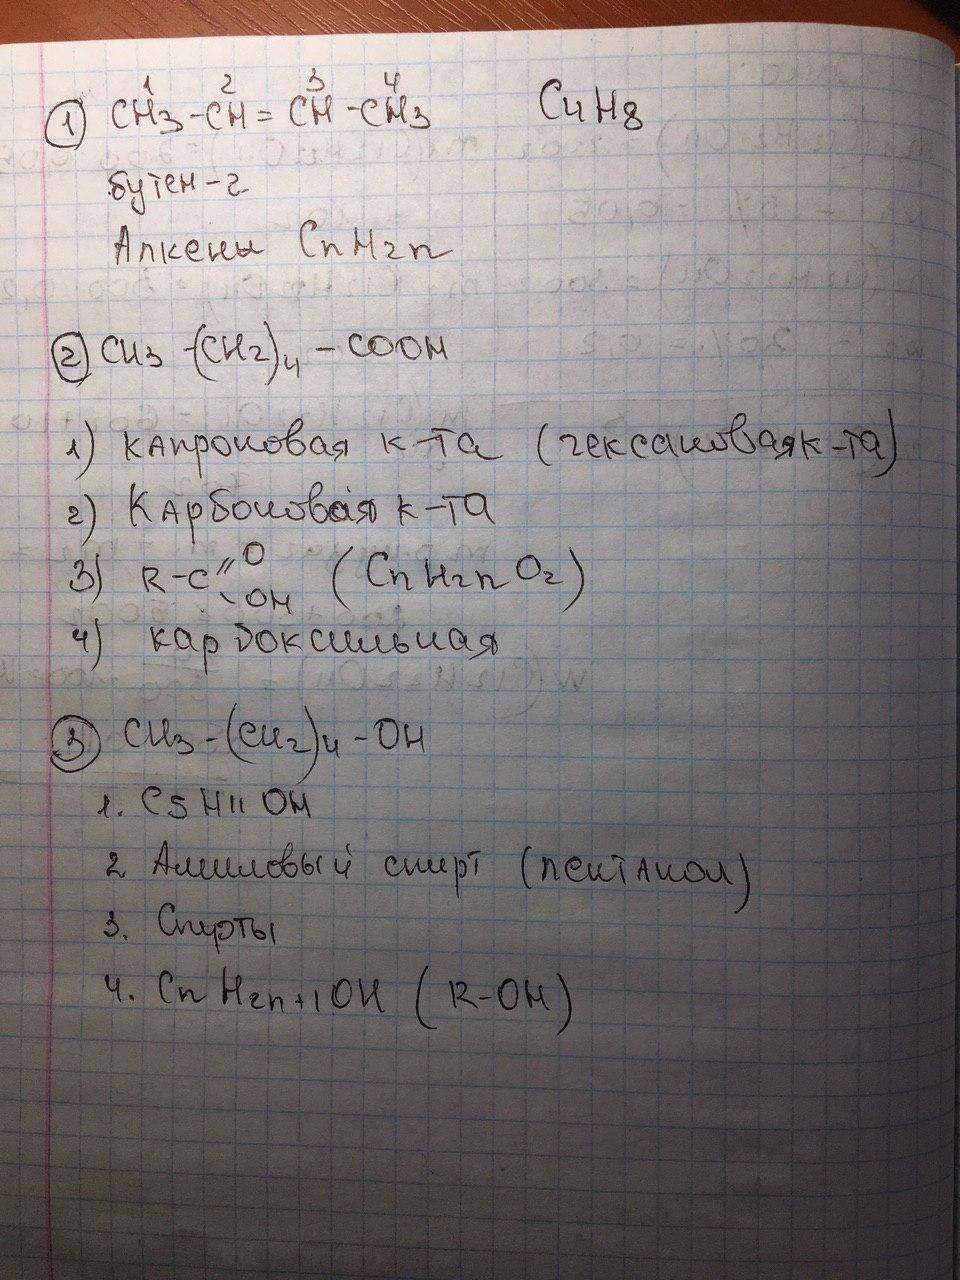 1 2 3 4
① CH3-CH=CH-CH3 C4H8
бутен-2
Алкены CnH2n
② CH3-(CH2)4-COOH
1) капроновая к-та (гексановая к-та)
2) Карбоновая к-та
3) R-C=O (CnH2nO2)
OH
4) карбоксильная
③ CH3-(CH2)4-OH
1. C5H11OH
2 Амиловый спирт (пентанол)
3. Спирты
4. CnH2n+1OH (R-OH)